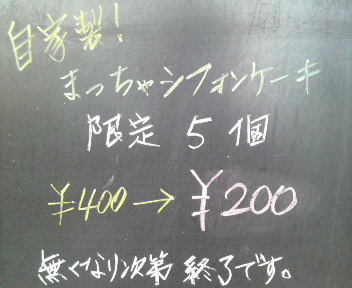 自家製!
まっちゃシフォンケーキ
限定 5 個
¥400→¥200
無くなり次第 終了です。